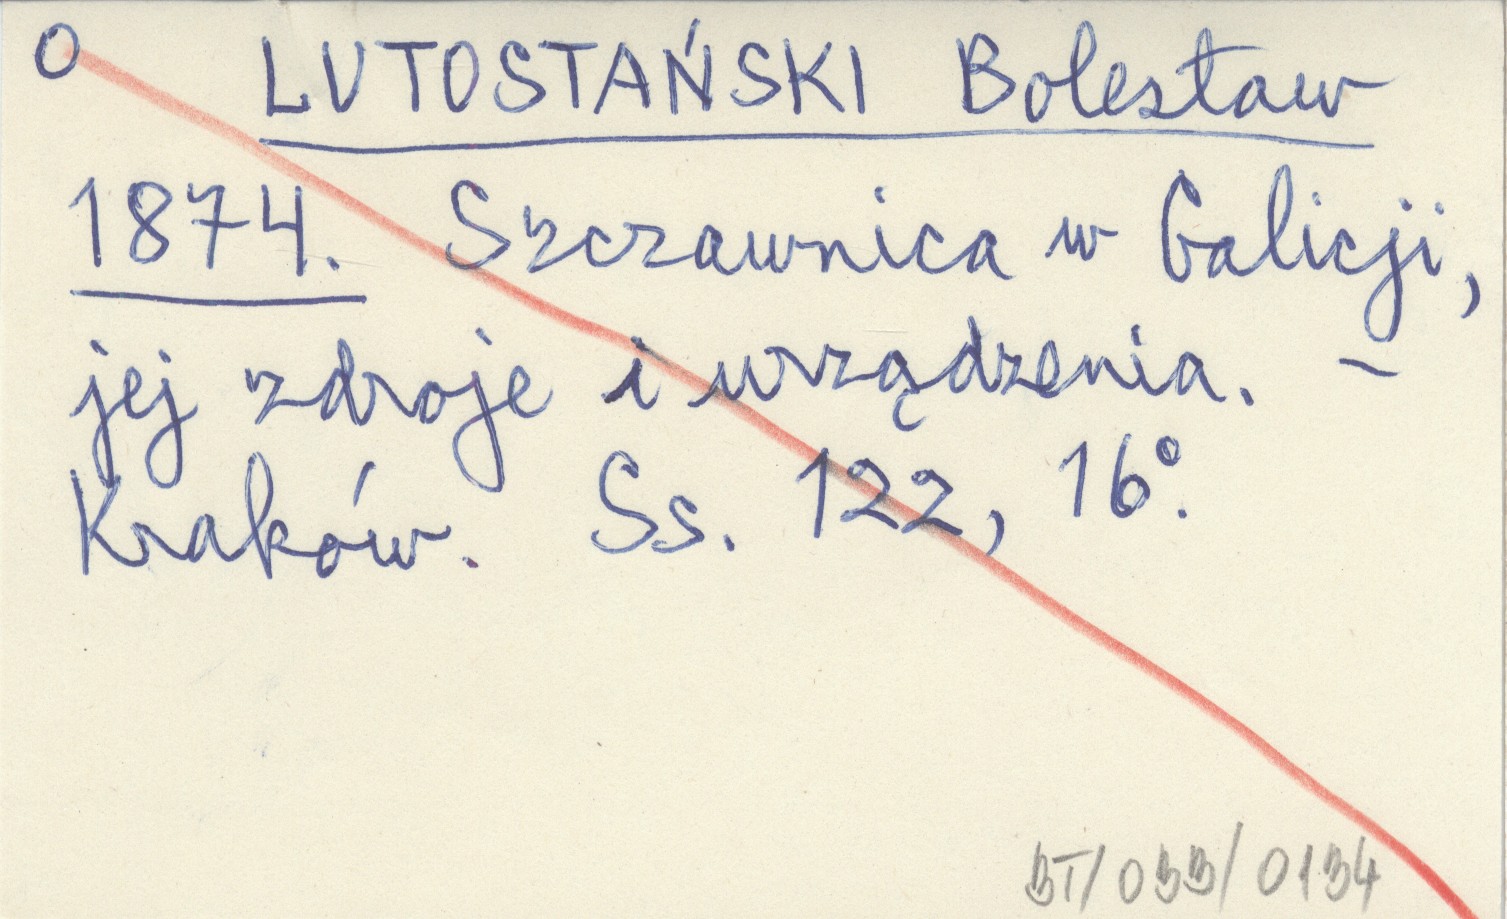 O LUTOSTAŃSKI Bolesław
1874. Szczawnica w Galicji,
jej zdroje i urządzenia. –
Kraków. Ss. 122, 16°.
BT/033/0134